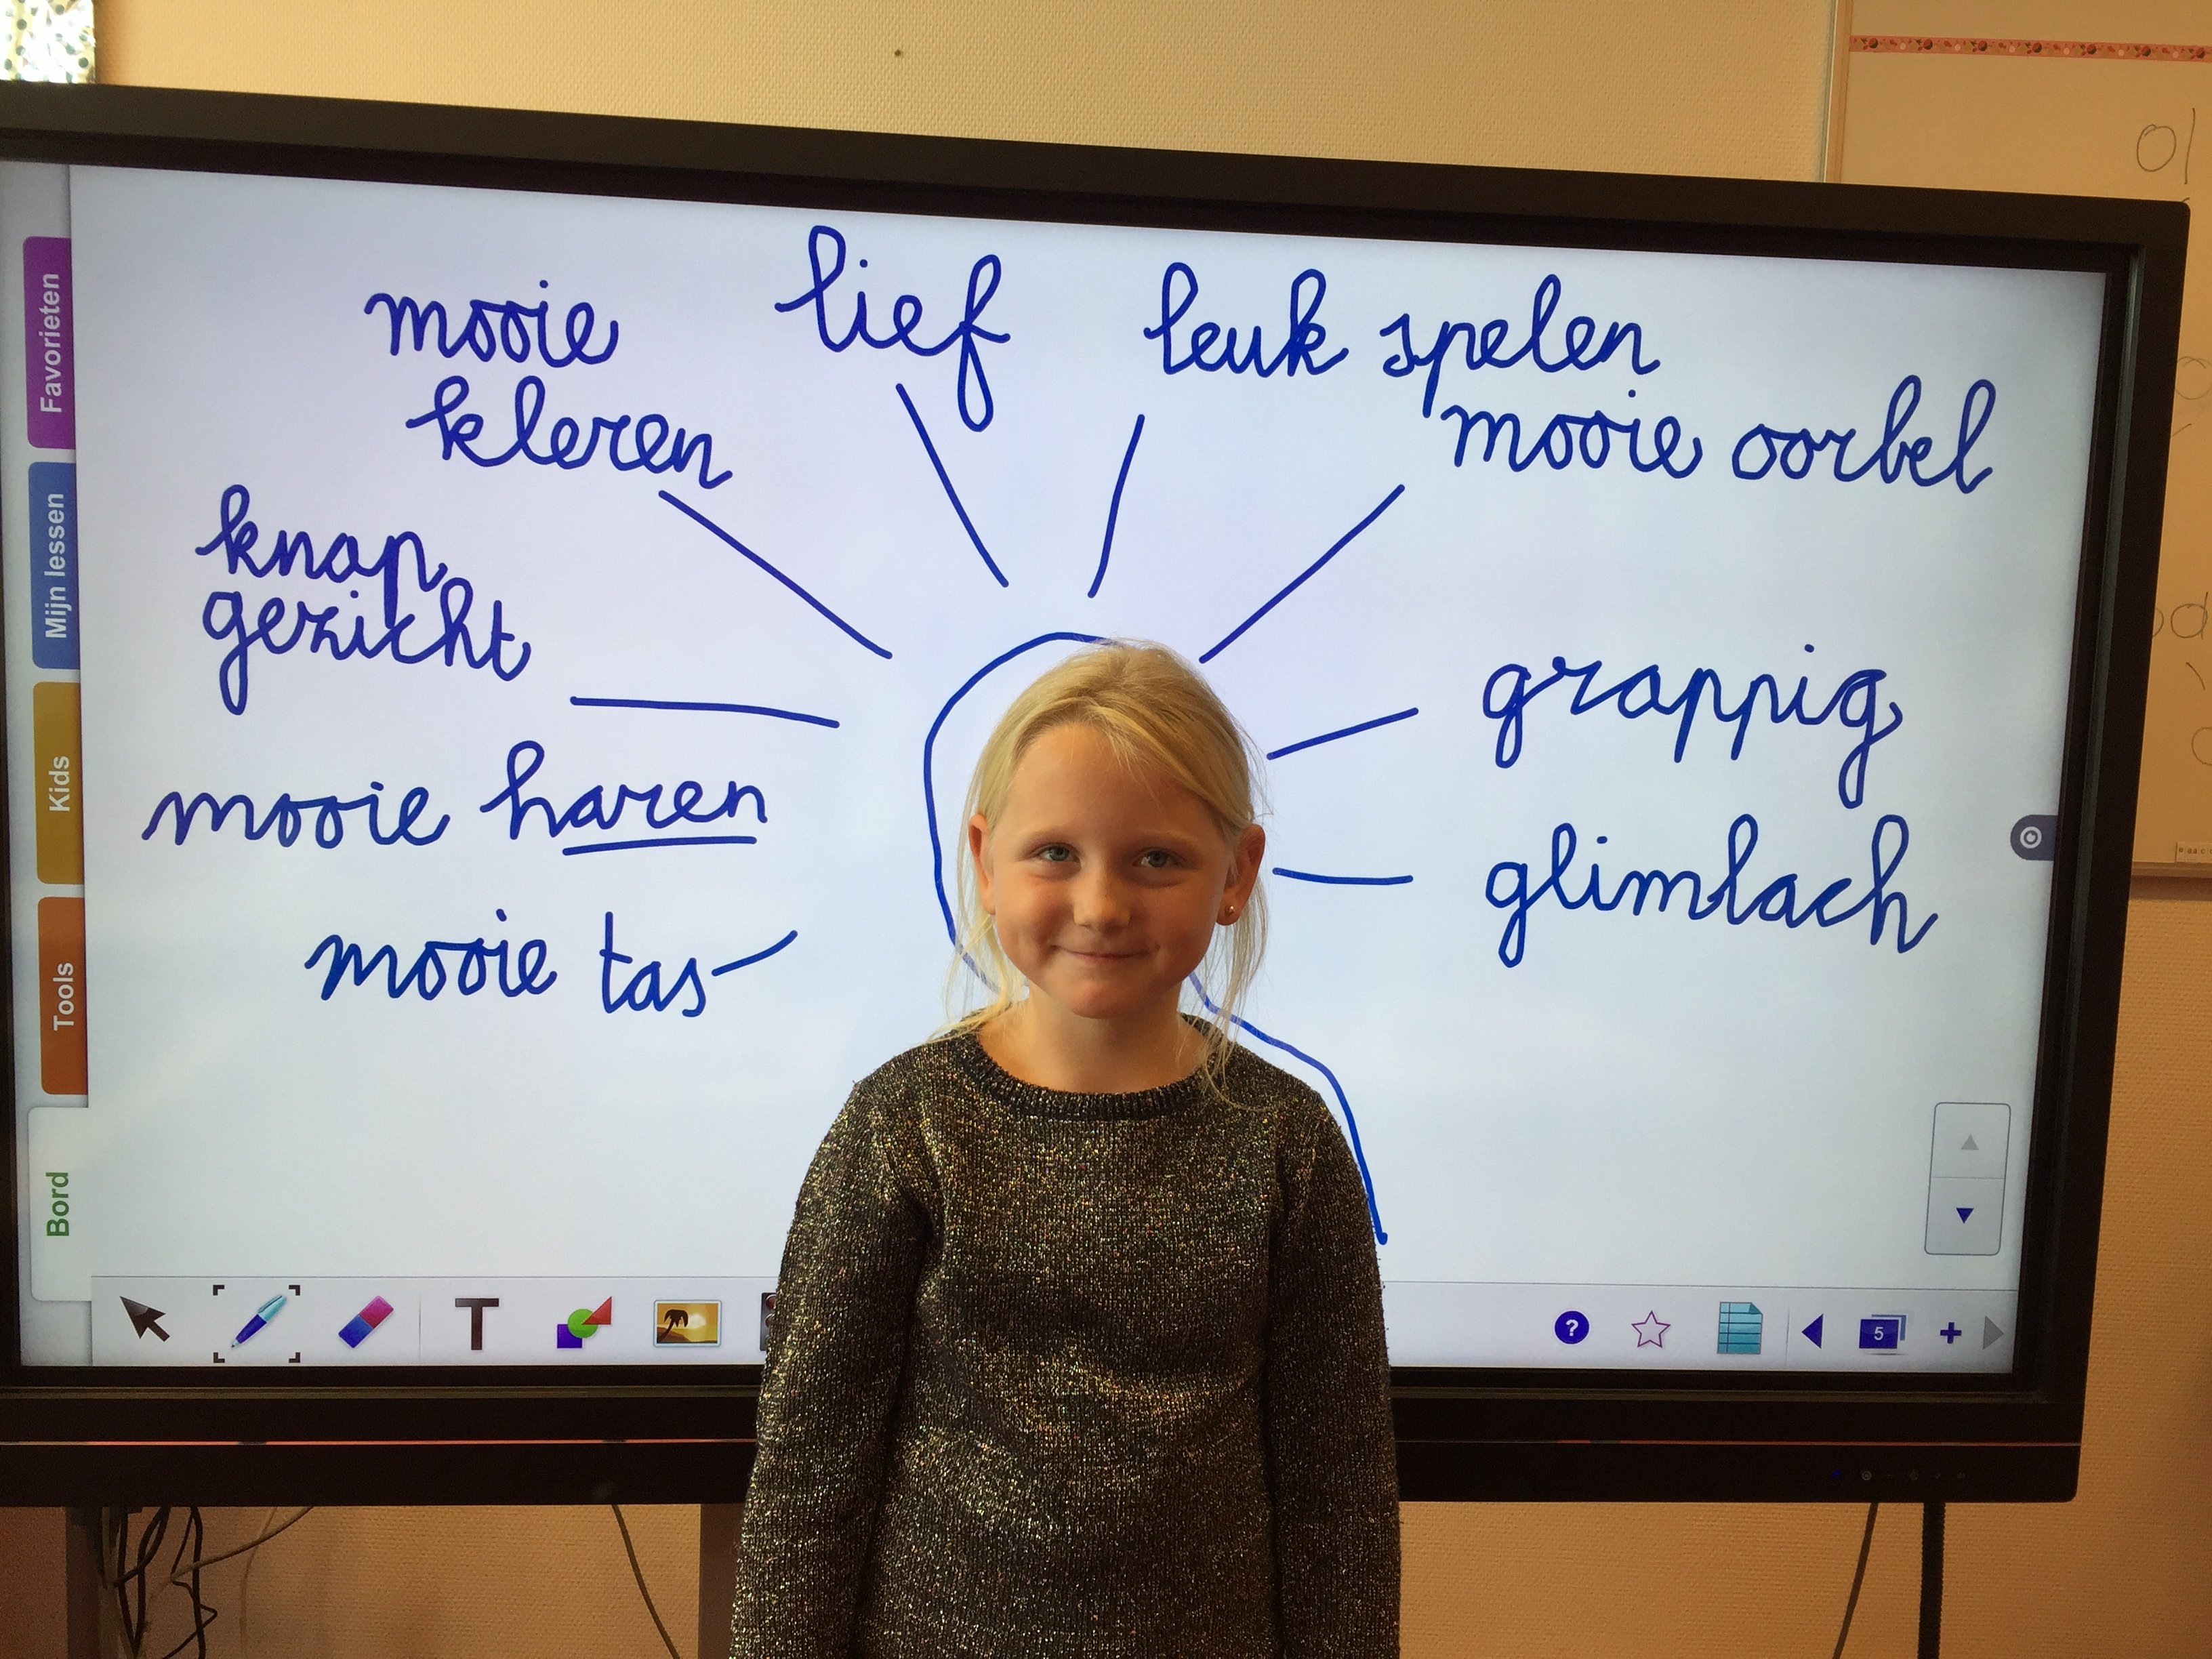 Favorieten
Mijn lessen
Kids
Tools
Bord
mooie
kleren
lief
leuk spelen
mooie oorbel
knap
gezicht
mooie haren
mooie tas
grappig
glimlach
T
?
5
+